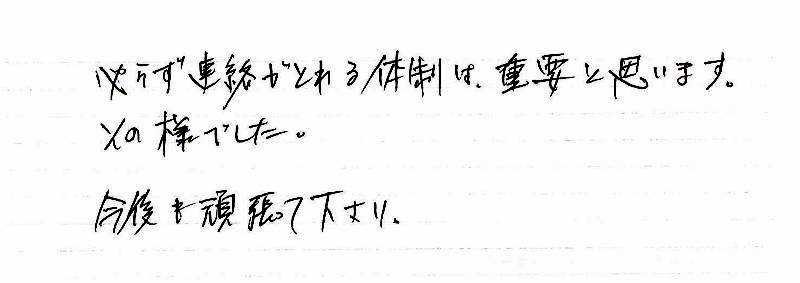 必らず連絡がとれる体制は、重要と思います。
その様でした。
今後も頑張て下さい。